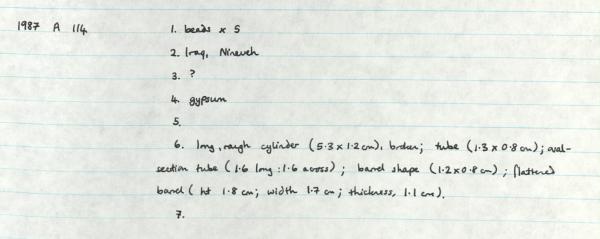 1987 A 114
1. beads x 5
2. Iraq, Nineveh
3. ?
4. gypsum
5.
6. long, rough cylinder (5.3 x 1.2 cm), broken; tube (1.3 x 0.8 cm); oval-
section tube (1.6 long : 1.6 across); barrel shape (1.2 x 0.8 cm); flattened
barrel (ht 1.8 cm; width 1.7 cm; thickness, 1.1 cm).
7.